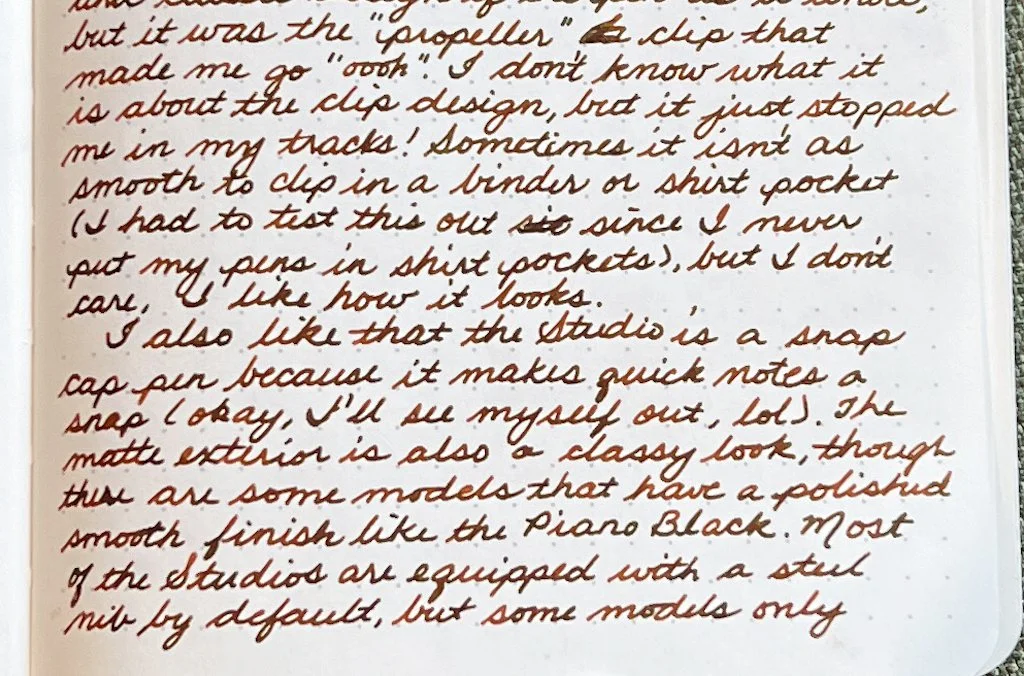 but it was the "propeller" clip that
made me go "oooh". I don't know what it
is about the clip design, but it just stopped
me in my tracks! Sometimes it isn't as
smooth to clip in a binder or shirt pocket
(I had to test this out since I never
put my pens in shirt pockets), but I don't
care, I like how it looks.
I also like that the Studio is a snap
cap pen because it makes quick notes a
snap (okay, I'll see myself out, lol). The
matte exterior is also a classy look, though
there are some models that have a polished
smooth finish like the Piano Black. Most
of the Studios are equipped with a steel
nib by default, but some models only